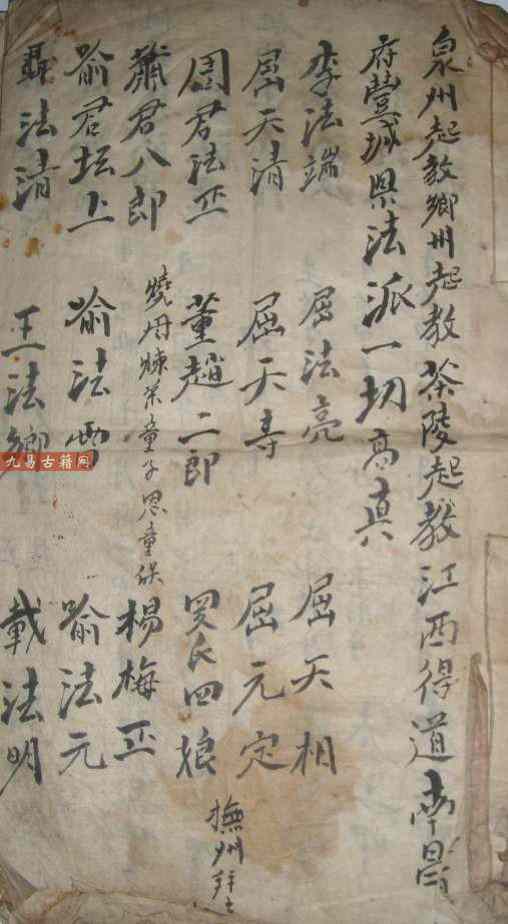 泉州起教鄉州起教茶陵起教江西得道南昌
府豐城県法派一切高真
李法端 屈法亮 屈天相
屈天清 屈天寿 屈元定
周君法正 董趙二郎 罗氏四娘 撫州
蕭君八郎 燒丹煉菜童子思童候 楊梅正
喻君坛上 喻法雪 喻法元
聶法清 王法卿 載法明
九易古籍网